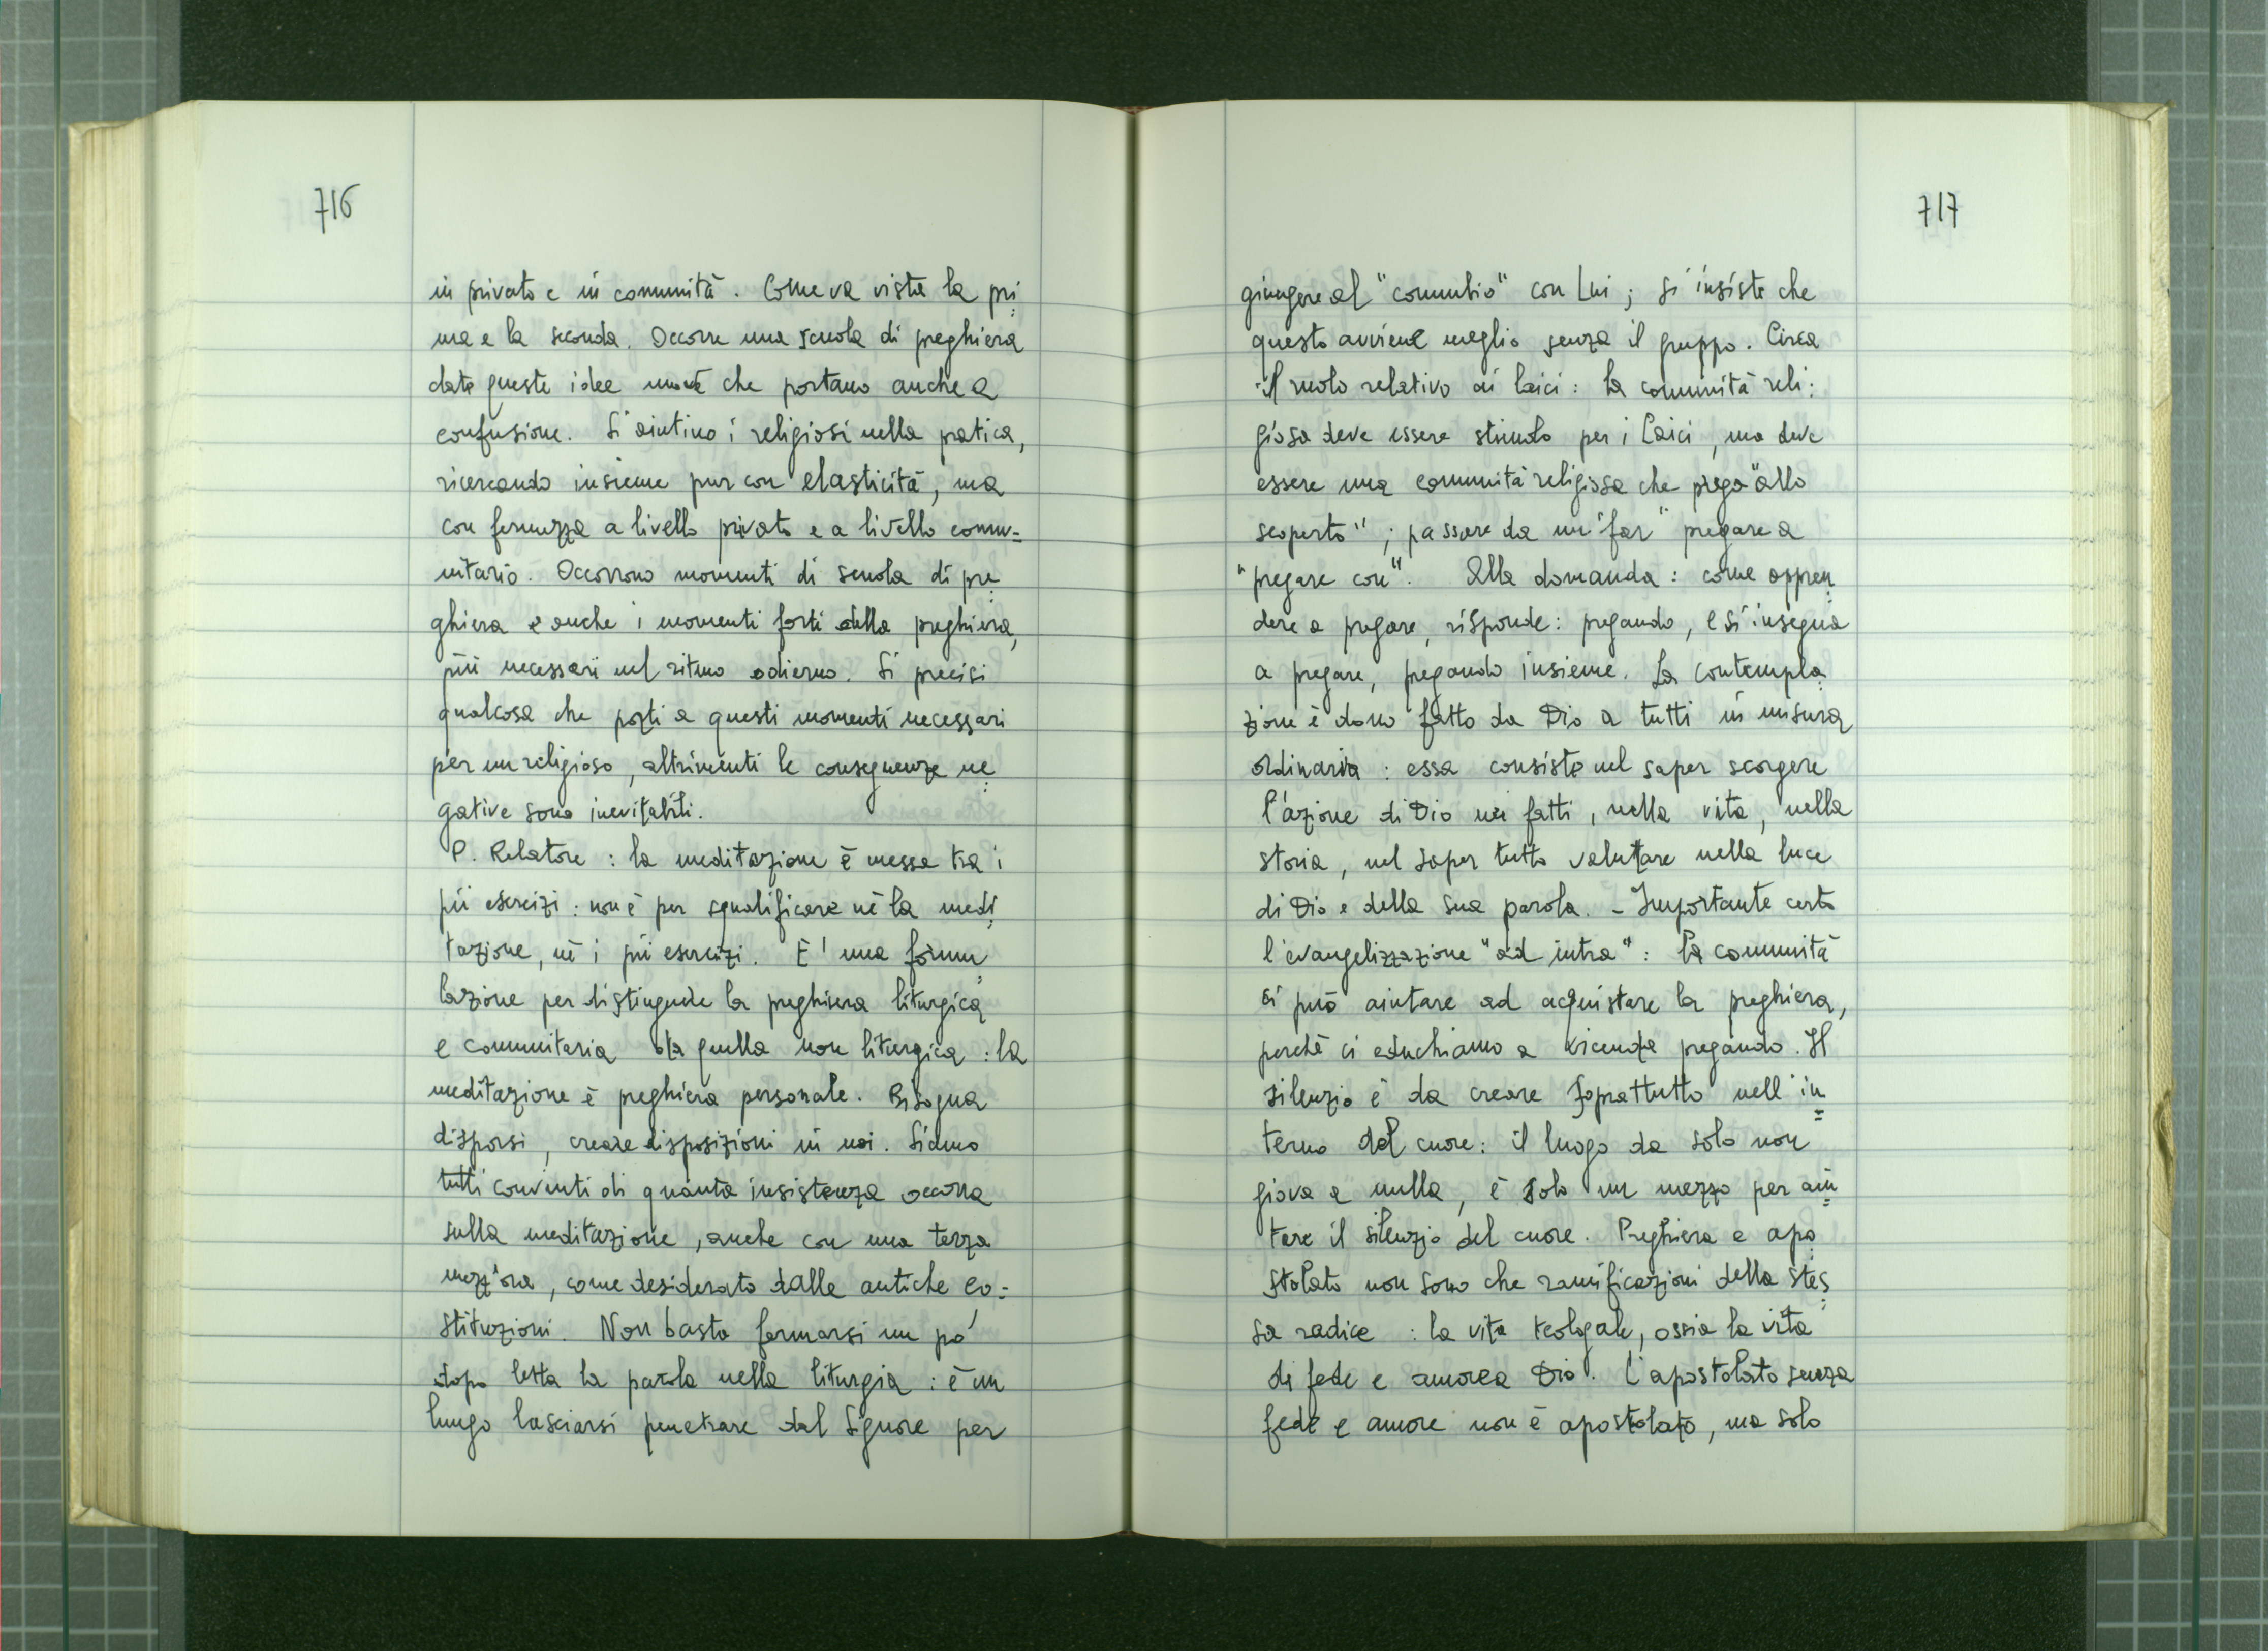 716
in privato e in comunità. Come va vista la pri=
ma e la seconda. Occorre una scuola di preghiera
date queste idee nuove che portano anche a
confusione. Si aiutino i religiosi nella pratica,
ricercando insieme pur con elasticità, ma
con fermezza a livello privato e a livello comu=
nitario. Occorrono momenti di scuola di pre=
ghiera e anche i momenti forti della preghiera,
più necessari nel ritmo odierno. Si precisi
qualcosa che porti a questi momenti necessari
per un religioso, altrimenti le conseguenze ne=
gative sono inevitabili.
P. Relatore : la meditazione è messa tra i
pii esercizi : non è per squalificare nè la medi=
tazione, nè i pii esercizi. E' una formu=
lazione per distinguere la preghiera liturgica
e comunitaria da quella non liturgica : la
meditazione è preghiera personale. Bisogna
disporsi, creare disposizioni in noi. Siamo
tutti convinti di quanta insistenza occorra
sulla meditazione, anche con una terza
mezz'ora, come desiderato dalle antiche co=
stituzioni. Non basta fermarsi un pò
dopo letta la parola nella liturgia : è un
lungo lasciarsi penetrare dal Signore per
717
giungere al "connubio" con Lui ; si insiste che
questo avviene meglio senza il gruppo. Circa
il ruolo relativo ai laici : la comunità reli=
giosa deve essere stimolo per i laici, ma deve
essere una comunità religiosa che prega "allo
scoperto" ; passare da un "far" pregare a
"pregare con". Alla domanda : come appren=
dere a pregare, risponde : pregando, e si insegna
a pregare, pregando insieme. La contempla=
zione è dono fatto da Dio a tutti in misura
ordinaria : essa consiste nel saper scorgere
l'azione di Dio nei fatti, nella vita, nella
storia, nel saper tutto valutare nella luce
di Dio e della sua parola. - Importante certo
l'evangelizzazione "ad intra" : la comunità
ci può aiutare ad acquistare la preghiera,
perchè ci educhiamo a vicenda pregando. Il
silenzio è da creare soprattutto nell'in=
terno del cuore : il luogo da solo non
giova a nulla, è solo un mezzo per aiu=
tare il silenzio del cuore. Preghiera e apo=
stolato non sono che ramificazioni della stes=
sa radice : la vita teologale, ossia la vita
di fede e amore a Dio. L'apostolato senza
fede e amore non è apostolato, ma solo